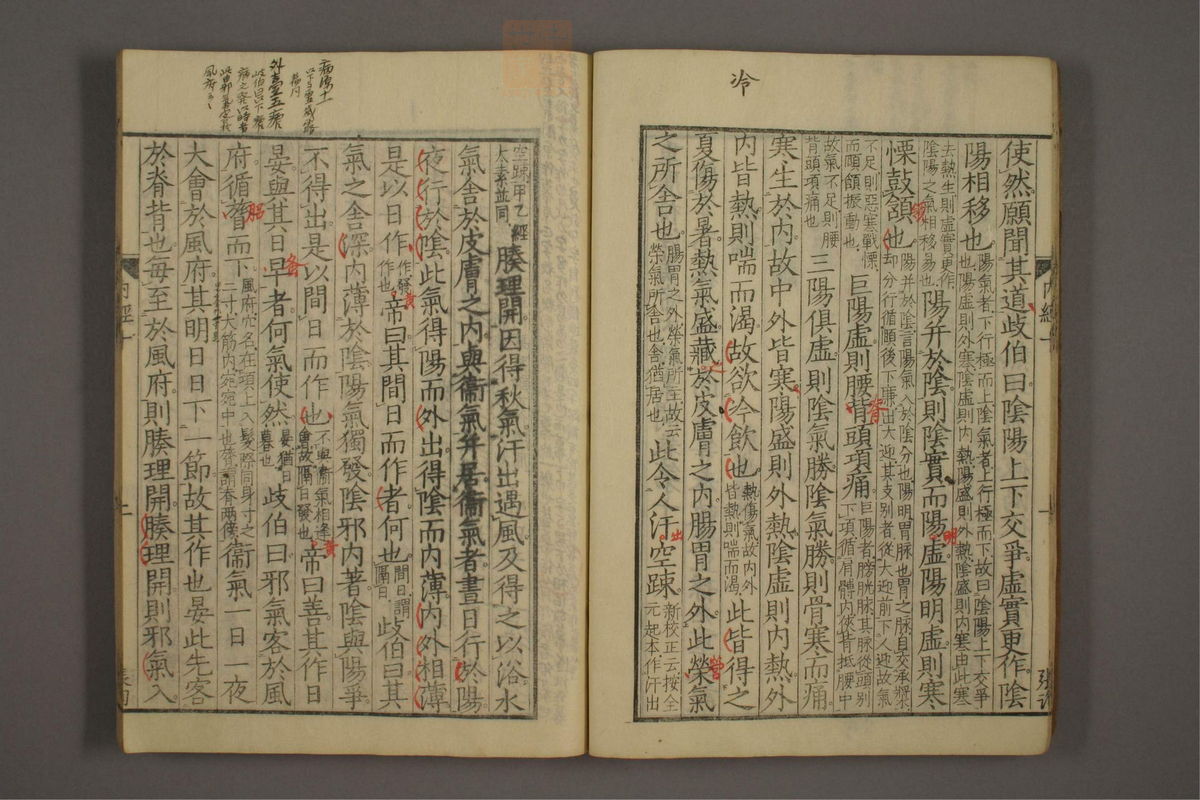 冷
使然願聞其道歧伯曰陰陽上下交爭虛實更作陰
陽相移也陽氣者下行極而上陰氣者上行極而下故曰陰陽上下交爭
也陽虛則外寒陰虛則內熱陽盛則外熱陰盛則內寒由此寒
去熱生則虛實更作
陰陽之氣相移易也陽并於陰則陰實而陽虛陽明虛則寒
明
慄鼓頷也陽并於陰言陽氣入於陰分也陽明胃脉也胃之脉自交承漿
却分行循頤後下廉出大迎其支别者從大迎前下人迎故氣
不足則惡寒戰慄
而頤頷振動也巨陽虛則腰背頭項痛巨陽者膀胱脉其脉從頭别
下項循肩髆內俠脊抵腰中
脊
故氣不足則腰
背頭項痛也三陽俱虛則陰氣勝陰氣勝則骨寒而痛
寒生於內故中外皆寒陽盛則外熱陰虛則內熱外
內皆熱則喘而渴故欲冷飲也熱傷氣故內外
皆熱則喘而渴此皆得之
夏傷於暑熱氣盛藏於皮膚之內腸胃之外此榮氣
營
之所舍也腸胃之外榮氣所主故云
榮氣所舍也舍猶居也此令人汗空踈新校正云按全
元起本作汗出
出
空踈甲乙經
太素並同腠理開因得秋氣汗出遇風及得之以浴水
氣舍於皮膚之內與衞氣并居衞氣者晝日行於陽
夜行於陰此氣得陽而外出得陰而內薄內外相薄
是以日作作發
作也帝曰其間日而作者何也間日謂
隔日歧伯曰其
黃
氣之舍深內薄於陰陽氣獨發陰邪內著陰與陽爭
不得出是以間日而作也不與衞氣相逢
會故隔日發也帝曰善其作日
黃
晏與其日早者何氣使然晏猶日
暮也歧伯曰邪氣客於風
府循膂而下風府穴名在項上入髮際同身寸之
二寸大筋內宛宛中也膂謂脊兩傍衞氣一日一夜
大會於風府其明日日下一節故其作也晏此先客
於脊背也每至於風府則腠理開腠理開則邪氣入
內經一